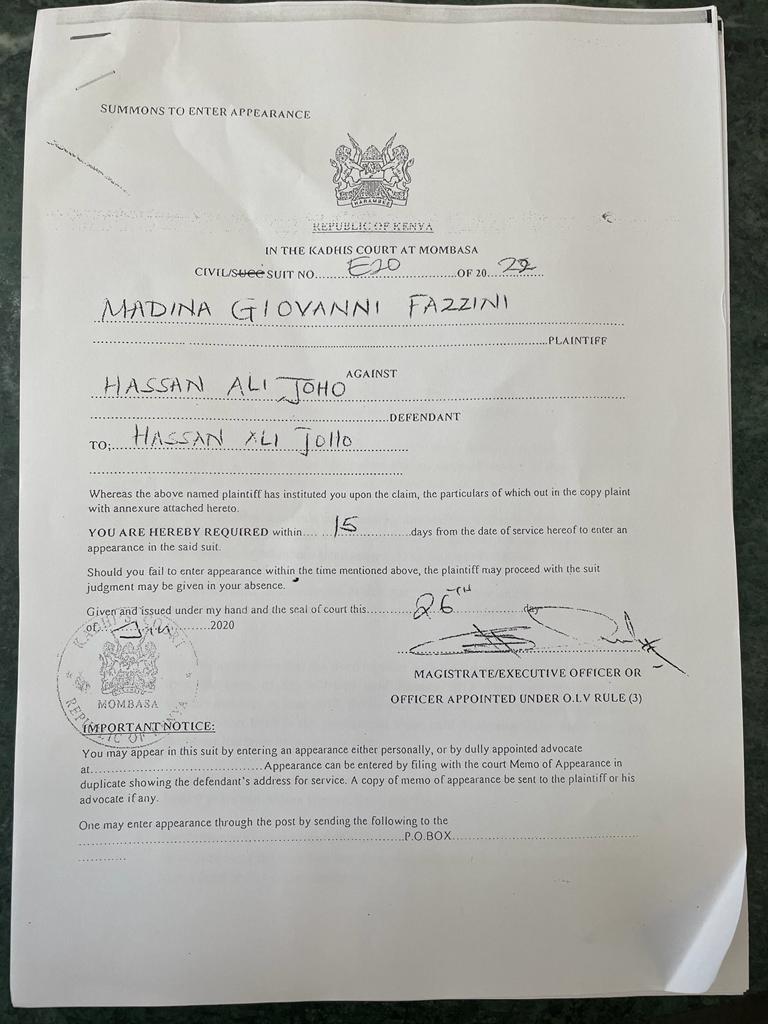 SUMMONS TO ENTER APPEARANCE
HARAMBEE
REPUBLIC OF KENYA
IN THE KADHIS COURT AT MOMBASA
CIVIL/SUCC SUIT NO....E20....OF 20..22..
MADINA GIOVANNI FAZZINI
....PLAINTIFF
AGAINST
HASSAN ALI JOHO
....DEFENDANT
TO;..HASSAN ALI JOHO
Whereas the above named plaintiff has instituted you upon the claim, the particulars of which out in the copy plaint
with annexure attached hereto.
YOU ARE HEREBY REQUIRED within....15....days from the date of service hereof to enter an
appearance in the said suit.
Should you fail to enter appearance within the time mentioned above, the plaintiff may proceed with the suit
judgment may be given in your absence.
Given and issued under my hand and the seal of court this....26TH....day
of........2020
KADHI'S COURT
MOMBASA
REPUBLIC OF KENYA
MAGISTRATE/EXECUTIVE OFFICER OR
OFFICER APPOINTED UNDER O.I.V RULE (3)
IMPORTANT NOTICE:
You may appear in this suit by entering an appearance either personally, or by dully appointed advocate
at....Appearance can be entered by filing with the court Memo of Appearance in
duplicate showing the defendant's address for service. A copy of memo of appearance be sent to the plaintiff or his
advocate if any.
One may enter appearance through the post by sending the following to the
....P.O.BOX....